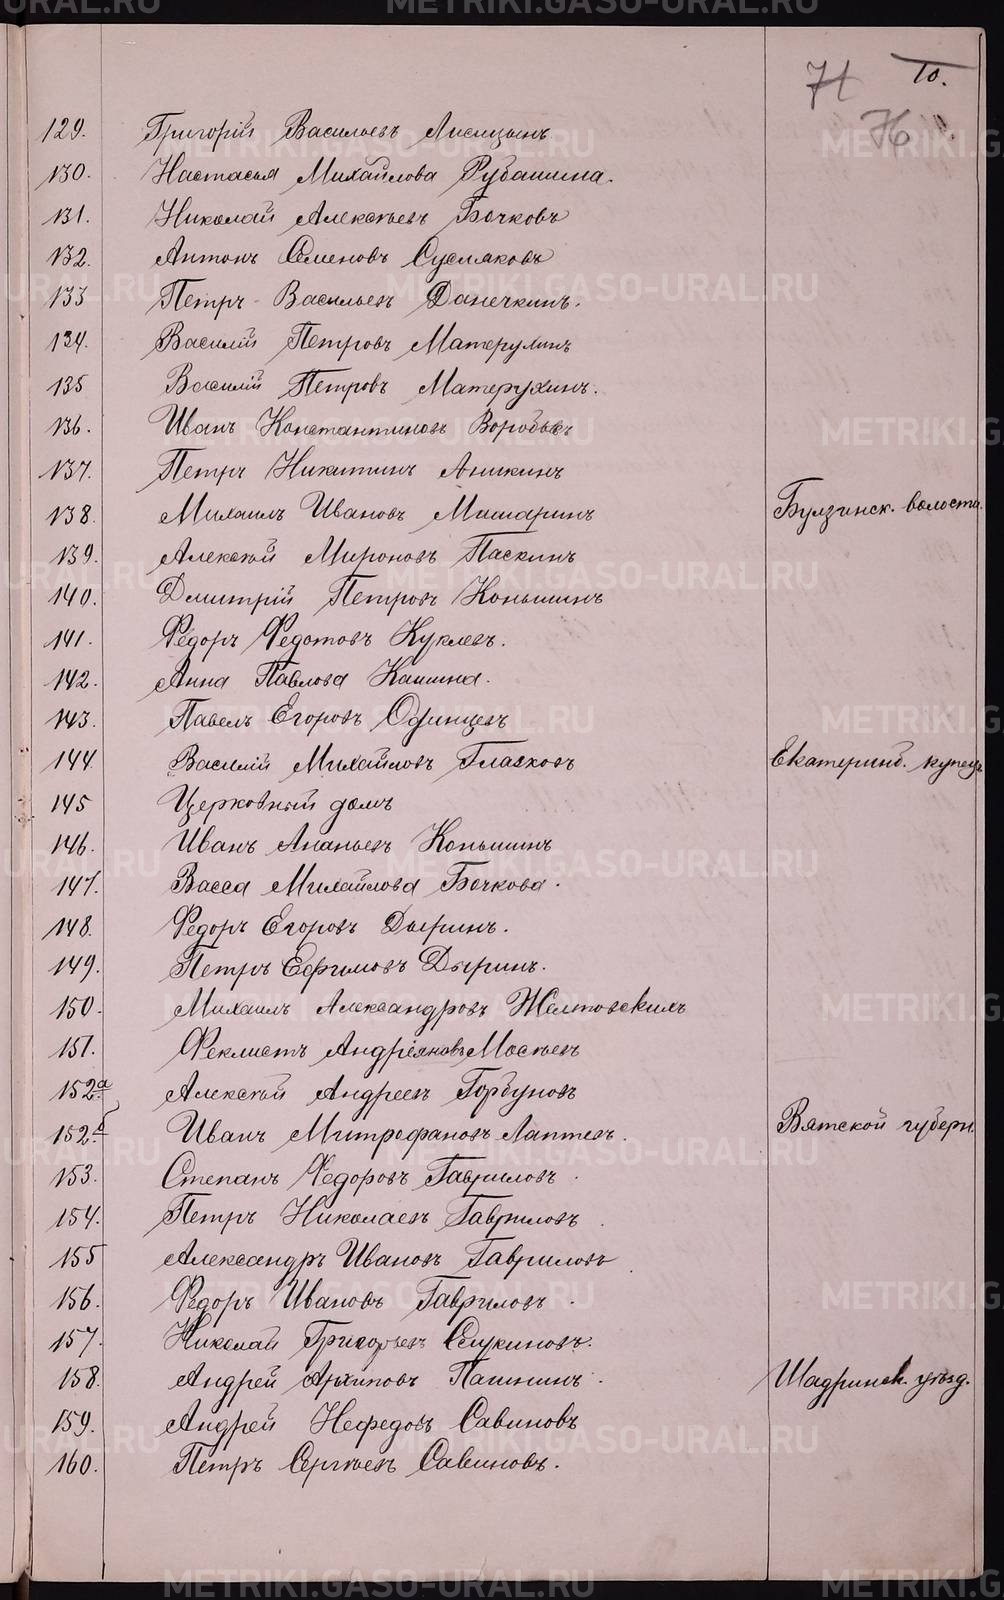 71 10.
76
129. Григорій Васильевъ Лисицынъ
130. Настасья Михайлова Рубашина.
131. Николай Алексѣевъ Бочковъ
132. Антонъ Семеновъ Сусляковъ
133 Петръ Васильевъ Данечкинъ.
134. Василій Петровъ Матерулинъ
135 Василій Петровъ Матерухинъ.
136. Иванъ Константиновъ Воробьевъ
137. Петръ Никитинъ Аникинъ
138. Михаилъ Ивановъ Мишаринъ Булзинск. волости.
139. Алексѣй Мироновъ Паскинъ
140. Дмитрій Петровъ Коньшинъ
141. Ѳедоръ Ѳедотовъ Куклевъ.
142. Анна Павлова Кашина.
143. Павелъ Егоровъ Одинцевъ
144 Василій Михайловъ Глазковъ Екатеринб. купецъ
145 Церковный домъ
146. Иванъ Ананьевъ Коньшинъ
147. Васса Михайлова Бочкова.
148. Ѳедоръ Егоровъ Дыринъ.
149. Петръ Ефимовъ Дыринъ.
150. Михаилъ Александровъ Желтовскихъ
151. Ѳеклистъ Андреяновъ Москвевъ
152а Алексѣй Андреевъ Горбуновъ
152б Иванъ Митрофановъ Лаптевъ. Вятской губерн.
153. Степанъ Ѳедоровъ Гавриловъ.
154. Петръ Николаевъ Гавриловъ.
155 Александръ Ивановъ Гавриловъ
156. Ѳедоръ Ивановъ Гавриловъ.
157. Николай Григорьевъ
158. Андрей Архиповъ Пашнинъ. Шадринск. уѣзд.
159. Андрей Нефедовъ Савиновъ
160. Петръ Сергѣевъ Савиновъ.
METRIKI.GASO-URAL.RU